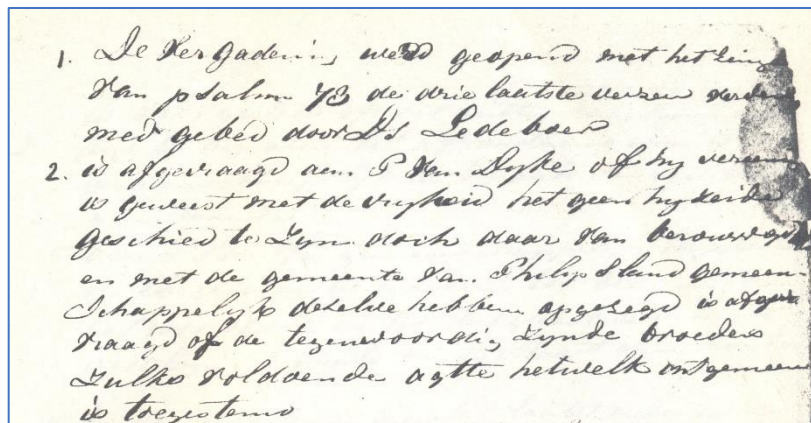 1. De Vergadering werd geopend met het zing
van psalm 73 de drie laatste verzen verder
med gebed door Ds Ledeboer
2. is afgevraagd aan P van Dyke of hy vereen
is geweest met de vryheid het geen hy zeide
geschied te zyn doch daar van berouw
en met de gemeente van Philipsland gemeen
schappelyk dezelve hebben opgezegd is afge
vraagd of de tegenwoordig zynde broeders
zulks voldoende agtte hetwelk
is toegestemd